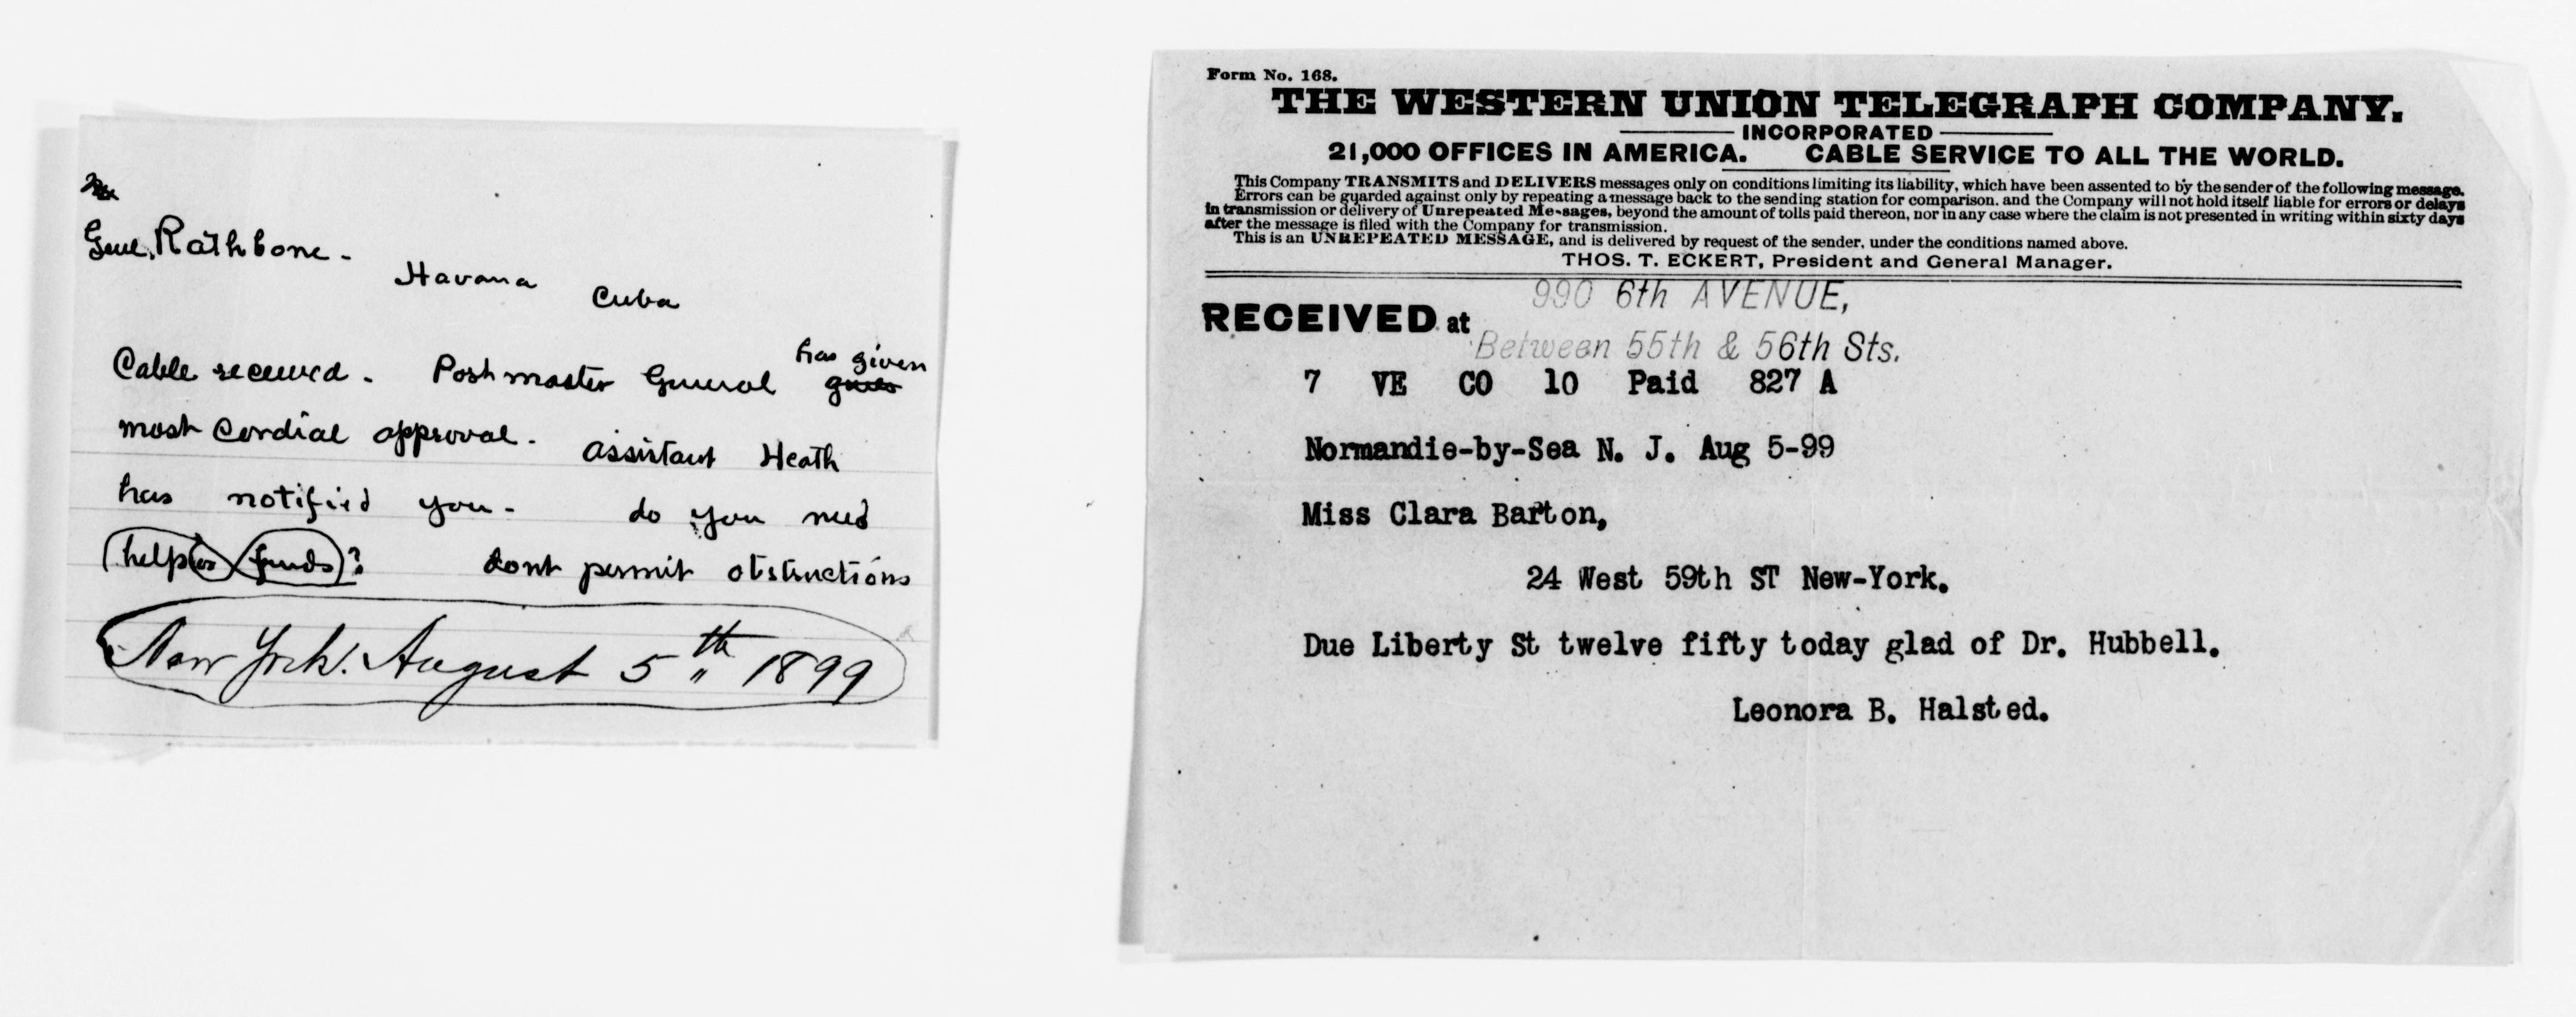 Genl. Rathbone -
Havana Cuba
has given
Cable received. Postmaster General gives
most cordial approval. assistant Heath
has notified you. do you need
help or funds? dont permit obstructions
New York. August 5th 1899
Form No. 168.
THE WESTERN UNION TELEGRAPH COMPANY.
INCORPORATED
21,000 OFFICES IN AMERICA. CABLE SERVICE TO ALL THE WORLD.
This Company TRANSMITS and DELIVERS messages only on conditions limiting its liability, which have been assented to by the sender of the following message.
Errors can be guarded against only by repeating a message back to the sending station for comparison, and the Company will not hold itself liable for errors or delays
in transmission or delivery of Unrepeated Messages, beyond the amount of tolls paid thereon, nor in any case where the claim is not presented in writing within sixty days
after the message is filed with the Company for transmission.
This is an UNREPEATED MESSAGE, and is delivered by request of the sender, under the conditions named above.
THOS. T. ECKERT, President and General Manager.
990 6th AVENUE,
RECEIVED at
Between 55th & 56th Sts.
7 VE CO 10 Paid 827 A
Normandie-by-Sea N. J. Aug 5-99
Miss Clara Barton,
24 West 59th ST New-York.
Due Liberty St twelve fifty today glad of Dr. Hubbell.
Leonora B. Halsted.